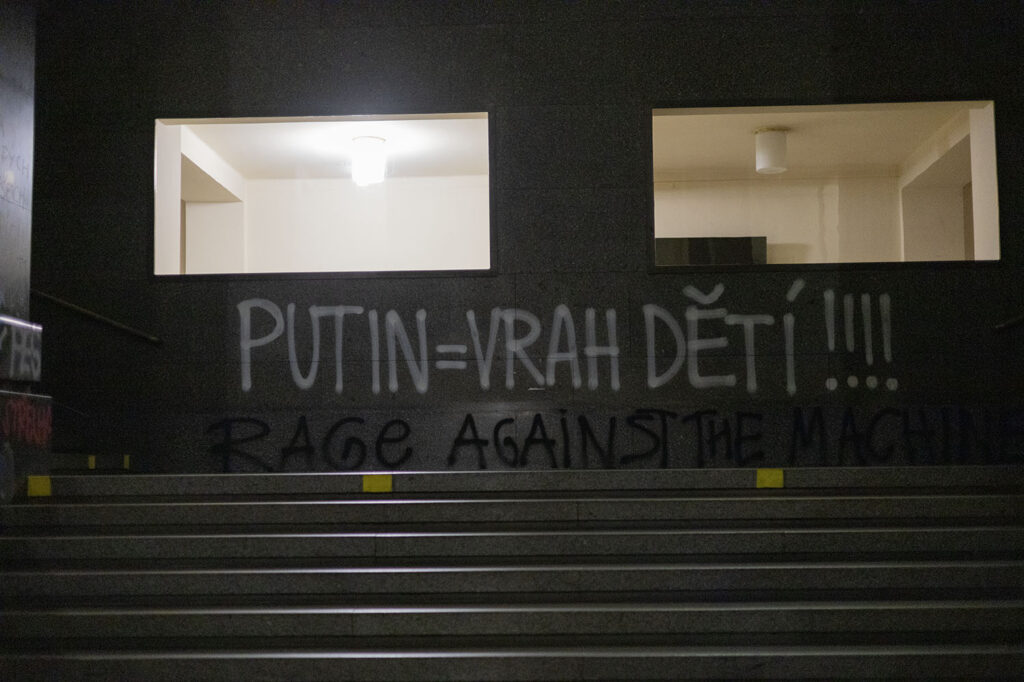 PUTIN=VRAH DĚTÍ !!!!
RAGE AGAINST THE MACHINE